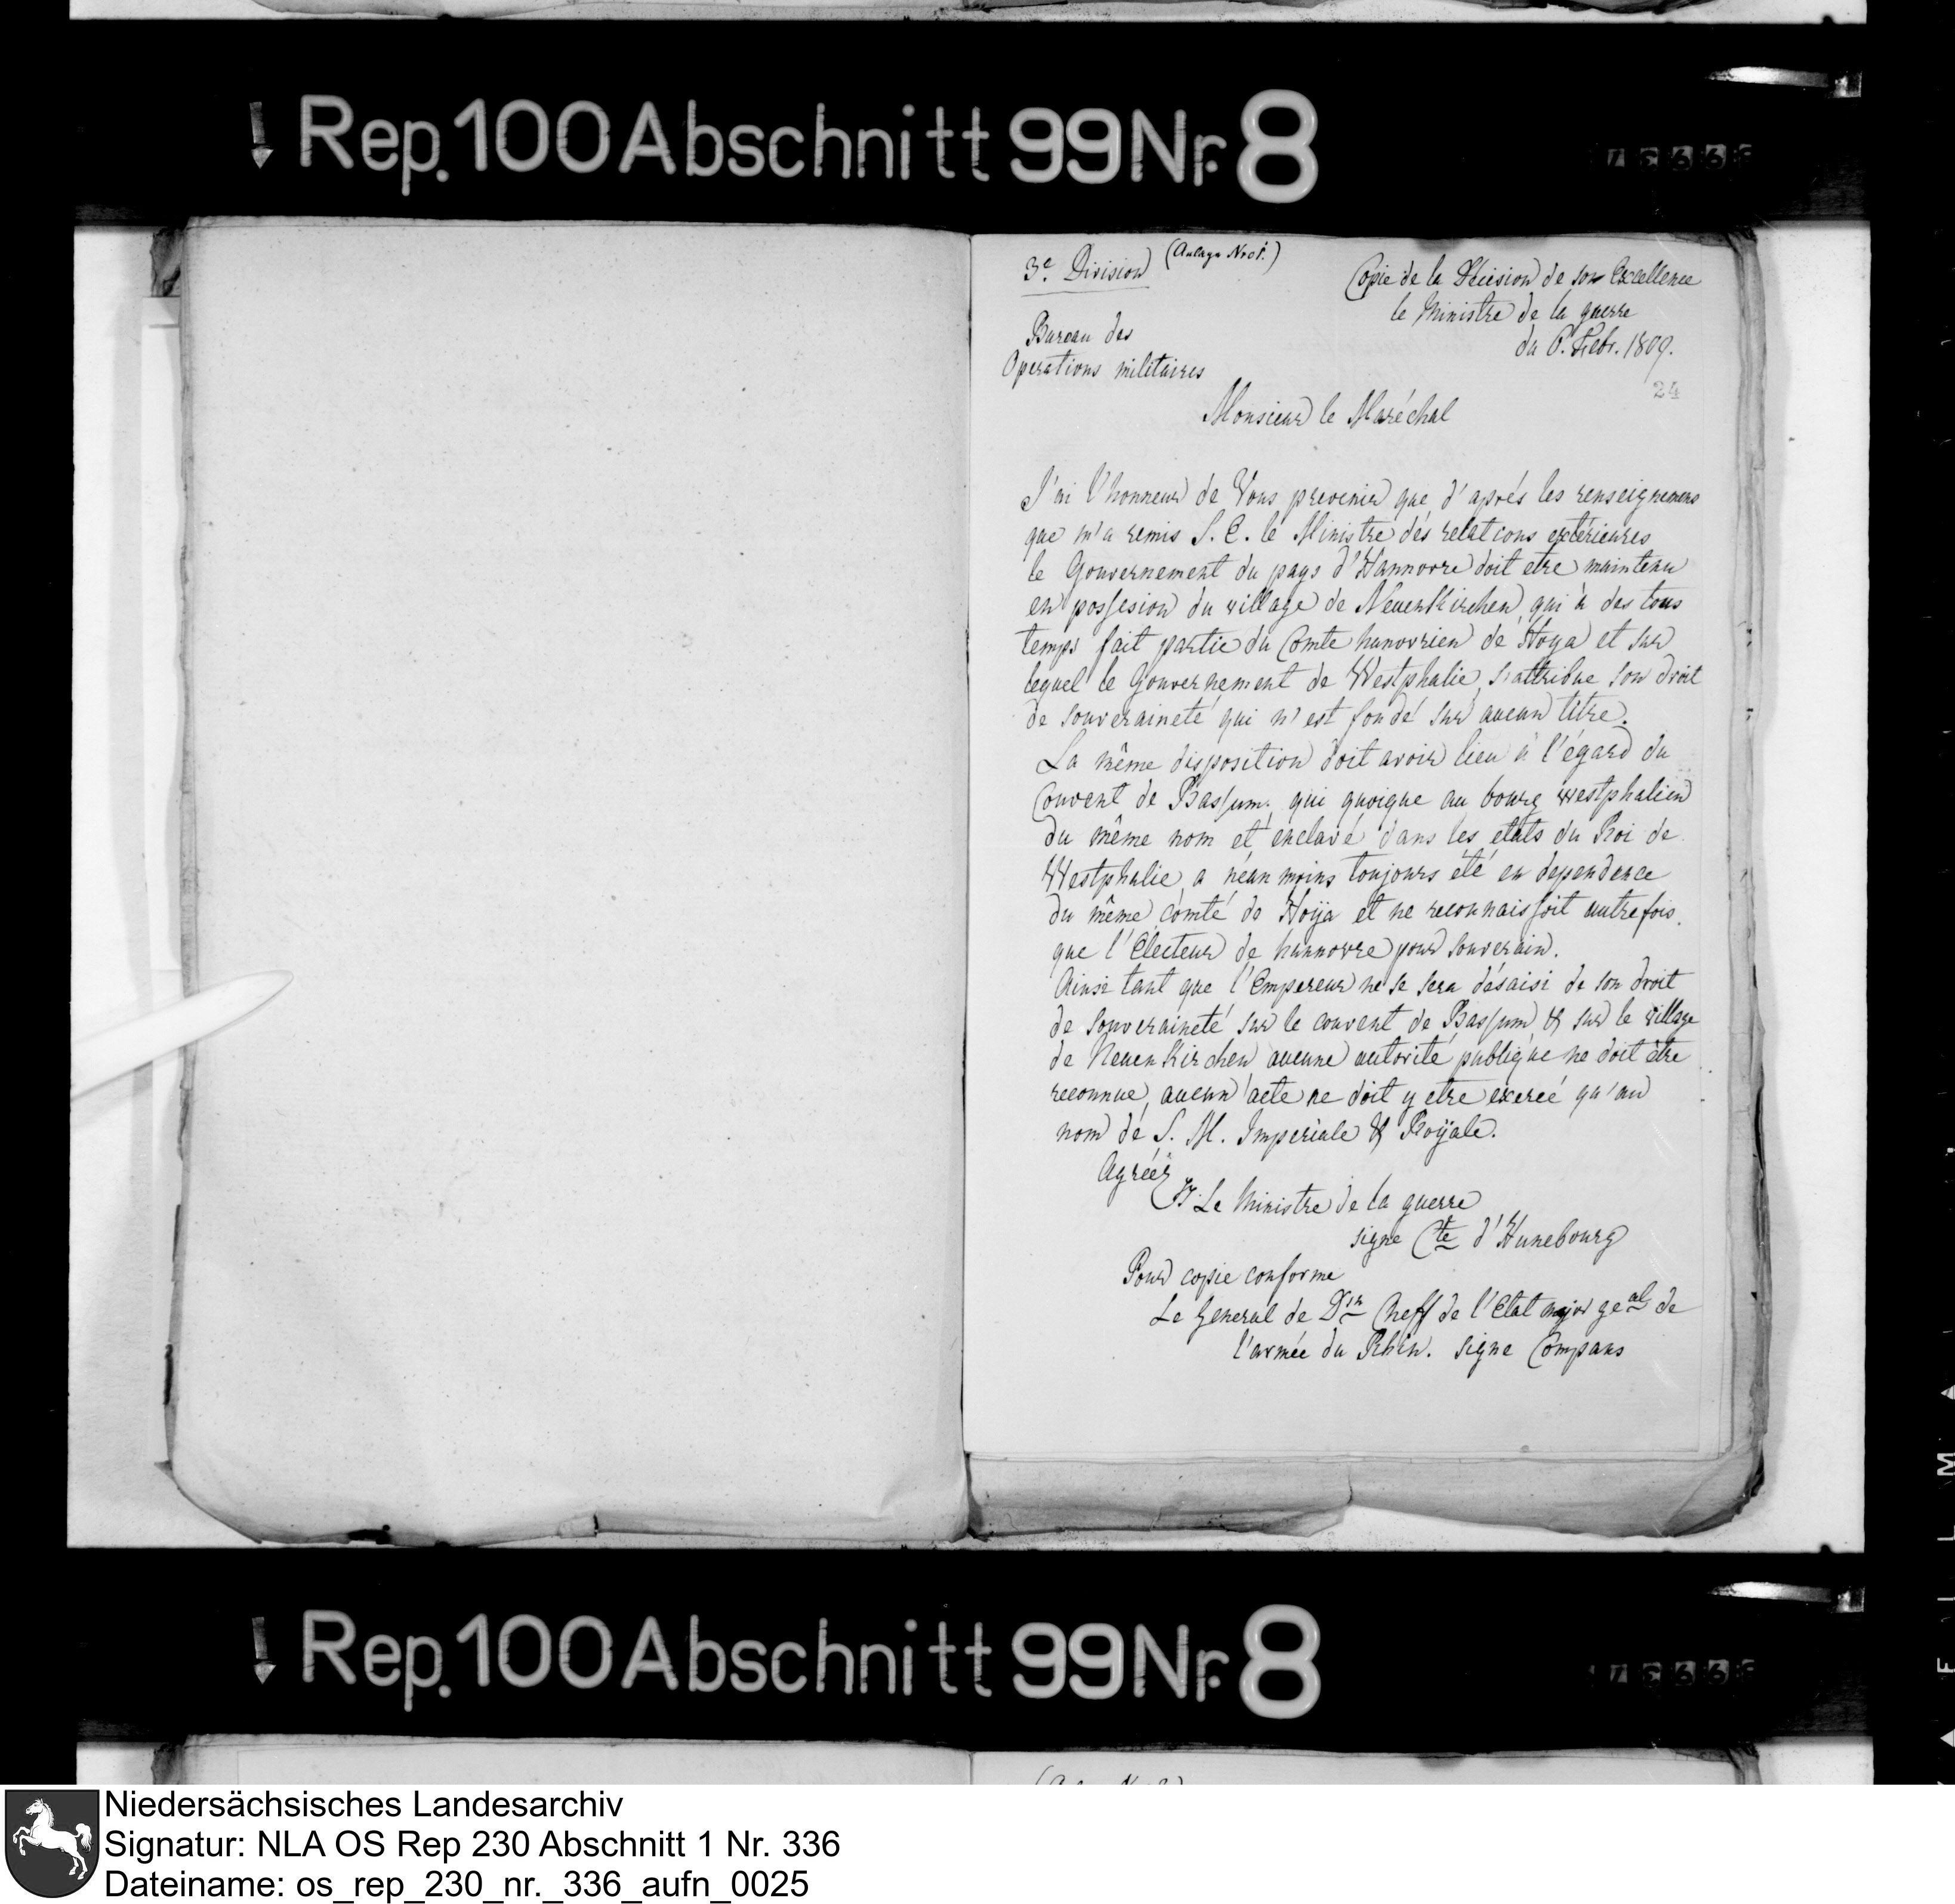 Rep. 100 Abschnitt 99 Nr. 8
3e. Division
(Anlage Nro 1.)
Copie de la Décision de son Excellence
le Ministre de la guerre
du 6. Febr. 1809.
Bureau des
Operations militaires
24
Monsieur le Maréchal
J'ai l'honneur de Vous prevenir que d'aprés les renseignemens
que m'a remis S. E. le Ministre des relations extérieures
le Gouvernement du pays d'Hannovre doit etre maintenu
en possesion du village de Neuenkirchen qui à des tous
temps fait partie du Comte hanovrien de Hoya et sur
lequel le Gouvernement de Westphalie s'attribue son droit
de souveraineté qui n'est fondé sur aucun titre.
La même disposition doit avoir lieu à l'égard du
Couvent de Bassum. qui quoique au bourg westphalien
du même nom et enclavé dans les etats du Roi de
Westphalie a néan moins toujours été en dependence
du même comté de Hoija et ne reconnaissoit autrefois.
que l'Electeur de hannovre pour souverain.
Ainsi tant que l'Empereur ne se sera désaisi de son droit
de souveraineté sur le couvent de Bassum & sur le village
de Neuenkirchen aucune autorité publique ne doit être
reconnue, aucun acte ne doit y etre exercé qu'au
nom de S. M. Imperiale & Roijale.
Agréez
Le Ministre de la guerre
signe Cte d'Hunebourg
Pour copie conforme
Le General de Don Cheff de l'Etat major geal de
l'armée du Rhin. signe Compans
Rep. 100 Abschnitt 99 Nr. 8
Niedersächsisches Landesarchiv
Signatur: NLA OS Rep 230 Abschnitt 1 Nr. 336
Dateiname: os_rep_230_nr._336_aufn_0025